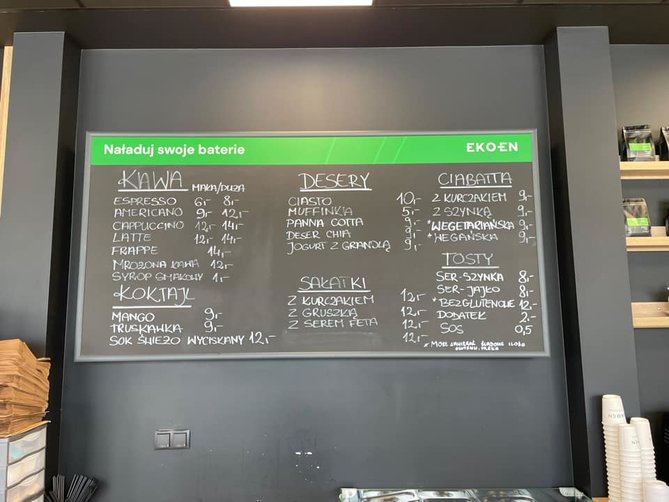 Naładuj swoje baterie
EKOEN
KAWA MAŁA/DUŻA
ESPRESSO 6,- 8,-
AMERICANO 9,- 12,-
CAPPUCCINO 12,- 14,-
LATTE 12,- 14,-
FRAPPE 14,-
MROŻONA KAWA 12,-
SYROP SMAKOWY 1,-
KOKTAJL
MANGO 9,-
TRUSKAWKA 9,-
SOK ŚWIEŻO WYCISKANY 12,-
DESERY
CIASTO 10,-
MUFFINKIA 5,-
PANNA COTTA 9,-
DESER CHIA 9,-
JOGURT Z GRANOLĄ 9,-
SAŁATKI
Z KURCZAKIEM 12,-
Z GRUSZKĄ 12,-
Z SEREM FETA 12,-
12,-
CIABATTA
Z KURCZAKIEM 9,-
Z SZYNKĄ 9,-
*WEGETARIAŃSKA 9,-
*WEGAŃSKA 9,-
TOSTY
SER-SZYNKA 8,-
SER-JAJKO 8,-
*BEZGLUTENOWE 12,-
DODATEK 2,-
SOS 0,5
* MOŻE ZAWIERAĆ ŚLADOWE ILOŚCI
GLUTENU, MLEKA